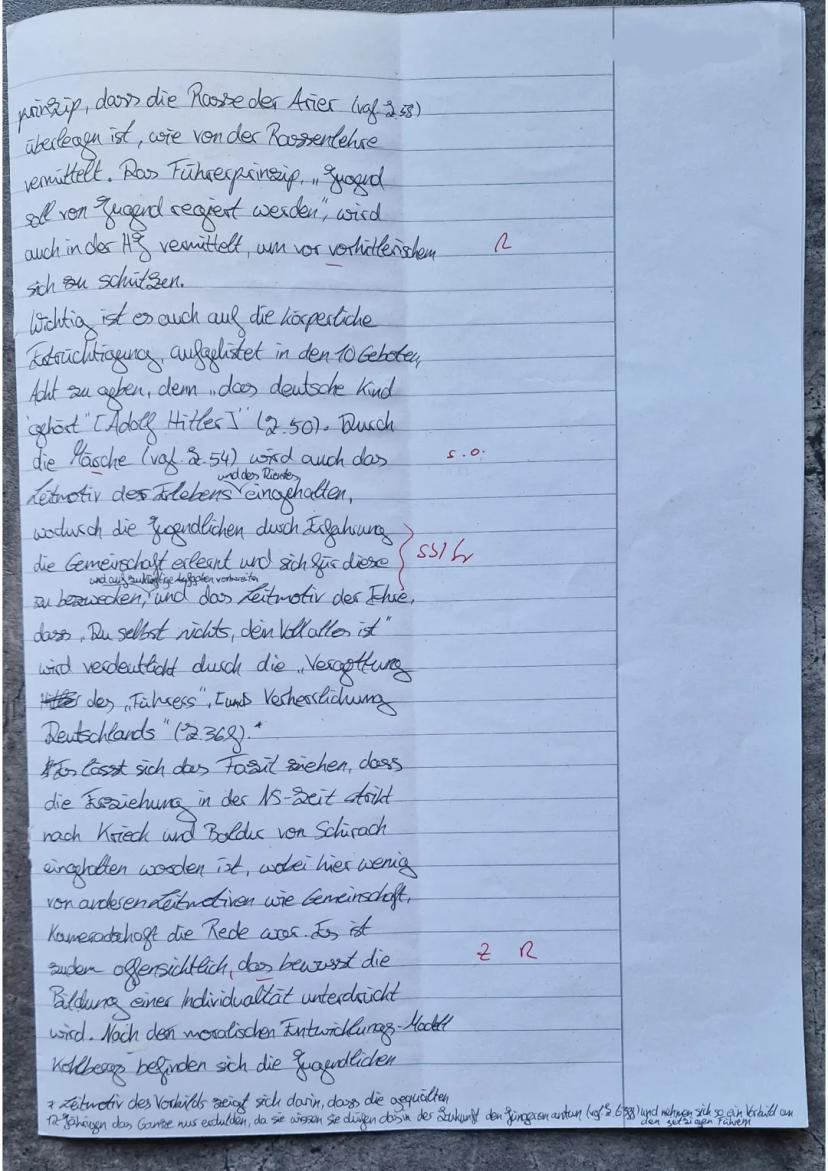 prinzip, dass die Rasse der Arier (vgl. Z. 58)
überlegen ist, wie von der Rassenlehre
vermittelt. Das Führerprinzip, „Jugend
soll von Jugend regiert werden“, wird
auch in der HJ vermittelt, um vor vorhitlerischem R
sich zu schützen.
Wichtig ist es auch auf die körperliche
Ertüchtigung, aufgelistet in den 10 Geboten,
Acht zu geben, denn „das deutsche Kind
gehört“ [Adolf Hitler]“ (Z. 50). Durch
die (vgl. Z. 54) wird auch das s.o.
und des Dienstes
Leitmotiv des Erlebens eingehalten,
wodurch die Jugendlichen durch Erfahrung
die Gemeinschaft erlernt und sich für diese
und auf zukünftige vorbereiten
zu bezwecken, und das Leitmotiv der Ehre,
dass „Du selbst nichts, dein Volk alles ist“
wird verdeutlicht durch die „Vergottung
des „Führers“, [und] Verherrlichung
Deutschlands“ (Z. 36f.).*
Es lässt sich das Fazit ziehen, dass
die Erziehung in der NS-Zeit strikt
nach Krieck und Baldur von Schirach
eingehalten worden ist, wobei hier wenig
von anderen Leitmotiven wie Gemeinschaft,
Kameradschaft die Rede war. Es ist
zudem offensichtlich, das bewusst die Z R
Bildung einer Individualität unterdrückt
wird. Nach den moralischen Entwicklungs-Modell
Kohlbergs befinden sich die Jugendlichen
* Leitmotiv des Vorbilds zeigt sich darin, dass die gequälten
12 Jährigen das Ganze nur erdulden, da sie wissen sie dürfen das in der Zukunft den Jüngeren antun (vgl. Z. ) und nehmen sich so ein Vorbild an
den jetzigen Führern